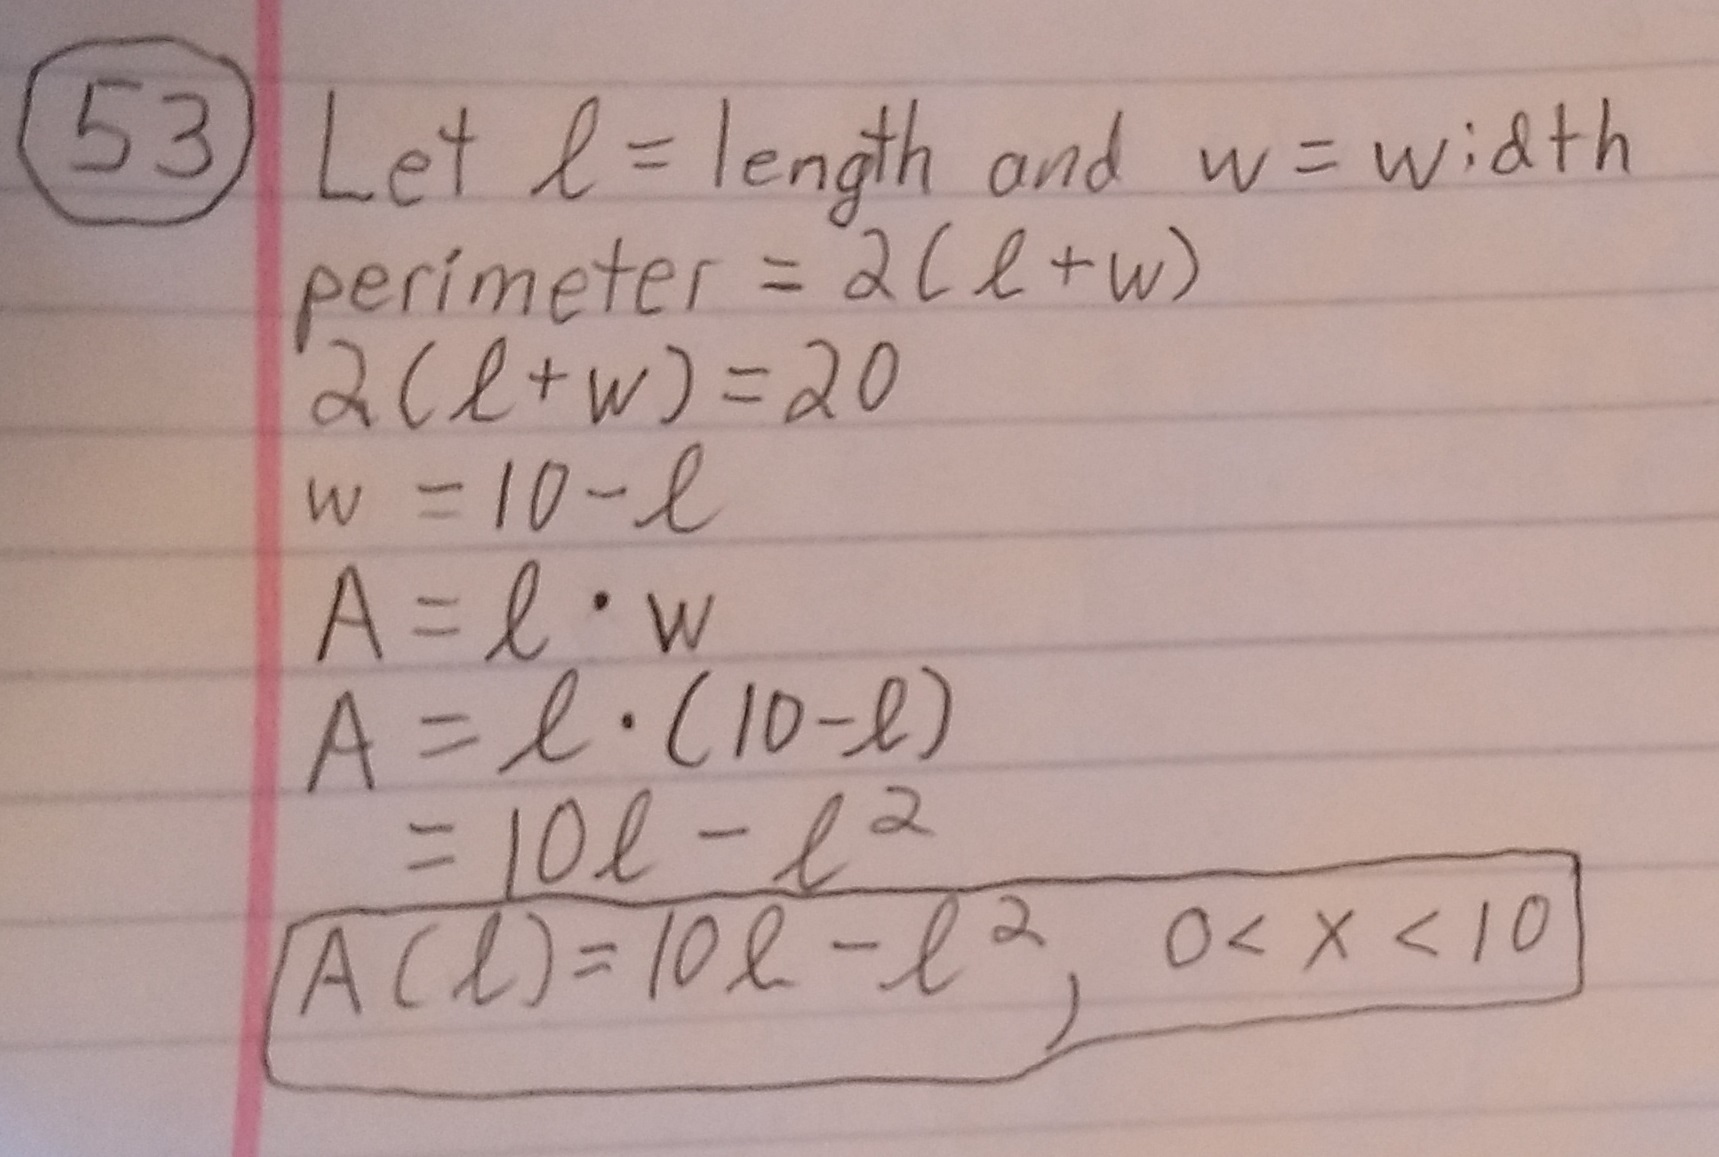 53 Let ℓ = length and w = width
perimeter = 2(ℓ+w)
2(ℓ+w) = 20
w = 10-ℓ
A = ℓ · w
A = ℓ · (10-ℓ)
= 10ℓ - ℓ²
A(ℓ) = 10ℓ - ℓ², 0 < x < 10